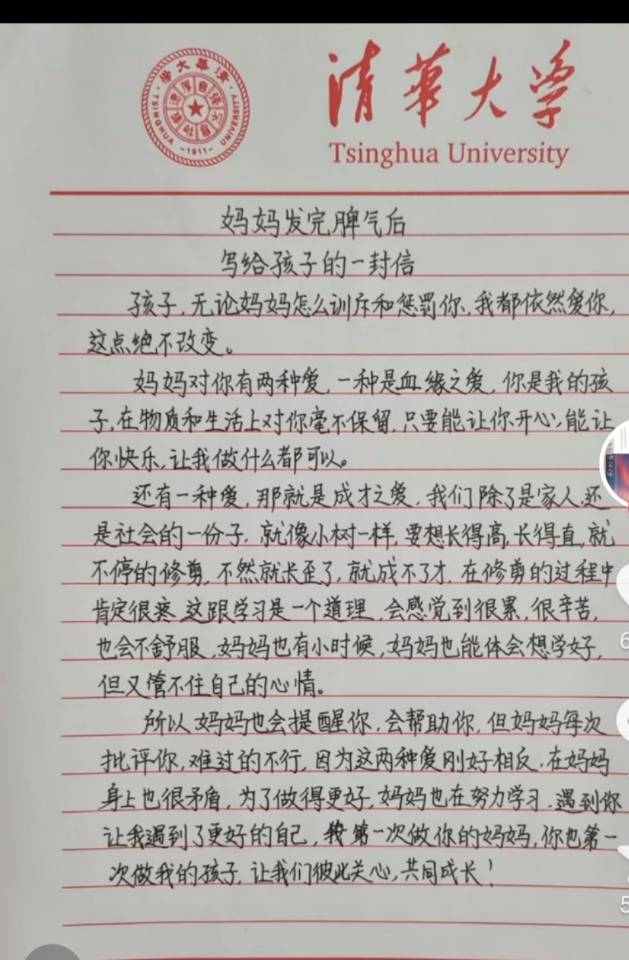 清華大学
TSINGHUA UNIVERSITY
-1911-
清華大学
Tsinghua University
妈妈发完脾气后
写给孩子的一封信
孩子,无论妈妈怎么训斥和惩罚你,我都依然爱你,
这点绝不改变。
妈妈对你有两种爱,一种是血缘之爱,你是我的孩
子,在物质和生活上对你毫不保留,只要能让你开心,能让
你快乐,让我做什么都可以。
还有一种爱,那就是成才之爱,我们除了是家人,还
是社会的一份子,就像小树一样,要想长得高,长得直,就
不停的修剪,不然就长歪了,就成不了才,在修剪的过程中
肯定很疼,这跟学习是一个道理,会感觉到很累,很辛苦,
也会不舒服,妈妈也有小时候,妈妈也能体会想学好,
但又管不住自己的心情。
所以妈妈也会提醒你,会帮助你,但妈妈每次
批评你,难过的不行,因为这两种爱刚好相反,在妈妈
身上也很矛盾,为了做得更好,妈妈也在努力学习,遇到你
让我遇到了更好的自己,我第一次做你的妈妈,你也第一
次做我的孩子,让我们彼此关心,共同成长!